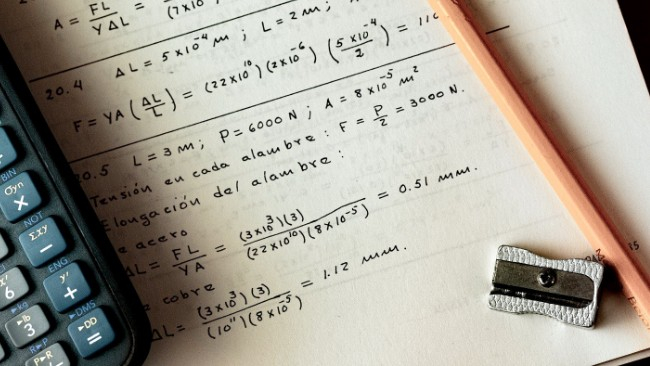 A = FL / YΔL =
(7x10
20.4 ΔL = 5 x10⁻⁴ m ; L = 2 m ;
F = YA (ΔL/L) = (22x10¹⁰)(2x10⁻⁶) (5x10⁻⁴/2) = 110
20.5 L = 3 m ; P = 6000 N ; A = 8 x10⁻⁵ m²
Tensión en cada alambre : F = P/2 = 3000 N.
Elongación del alambre :
acero
ΔL = FL/YA = (3x10³)(3) / (22x10¹⁰)(8x10⁻⁵) = 0.51 mm.
cobre
ΔL = (3x10³)(3) / (10¹¹)(8x10⁻⁵) = 1.12 mm.
BIN
Gyn
×
NOT
Σxy
−
ENG
yˣ
+
6
▶DMS
▶DD
=
▶lb
3
R▶P
P▶R
15